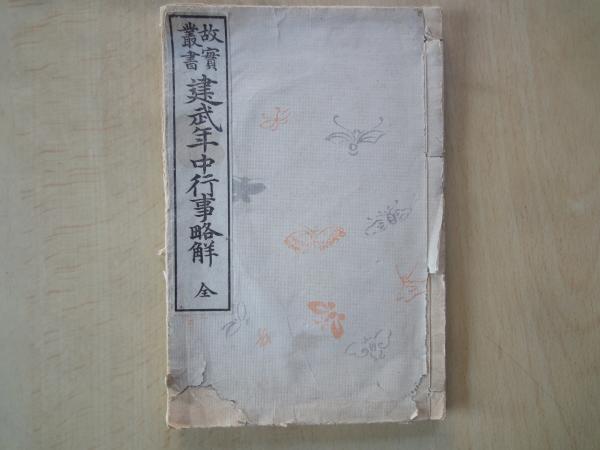 故實
叢書
建武年中行事略解
全